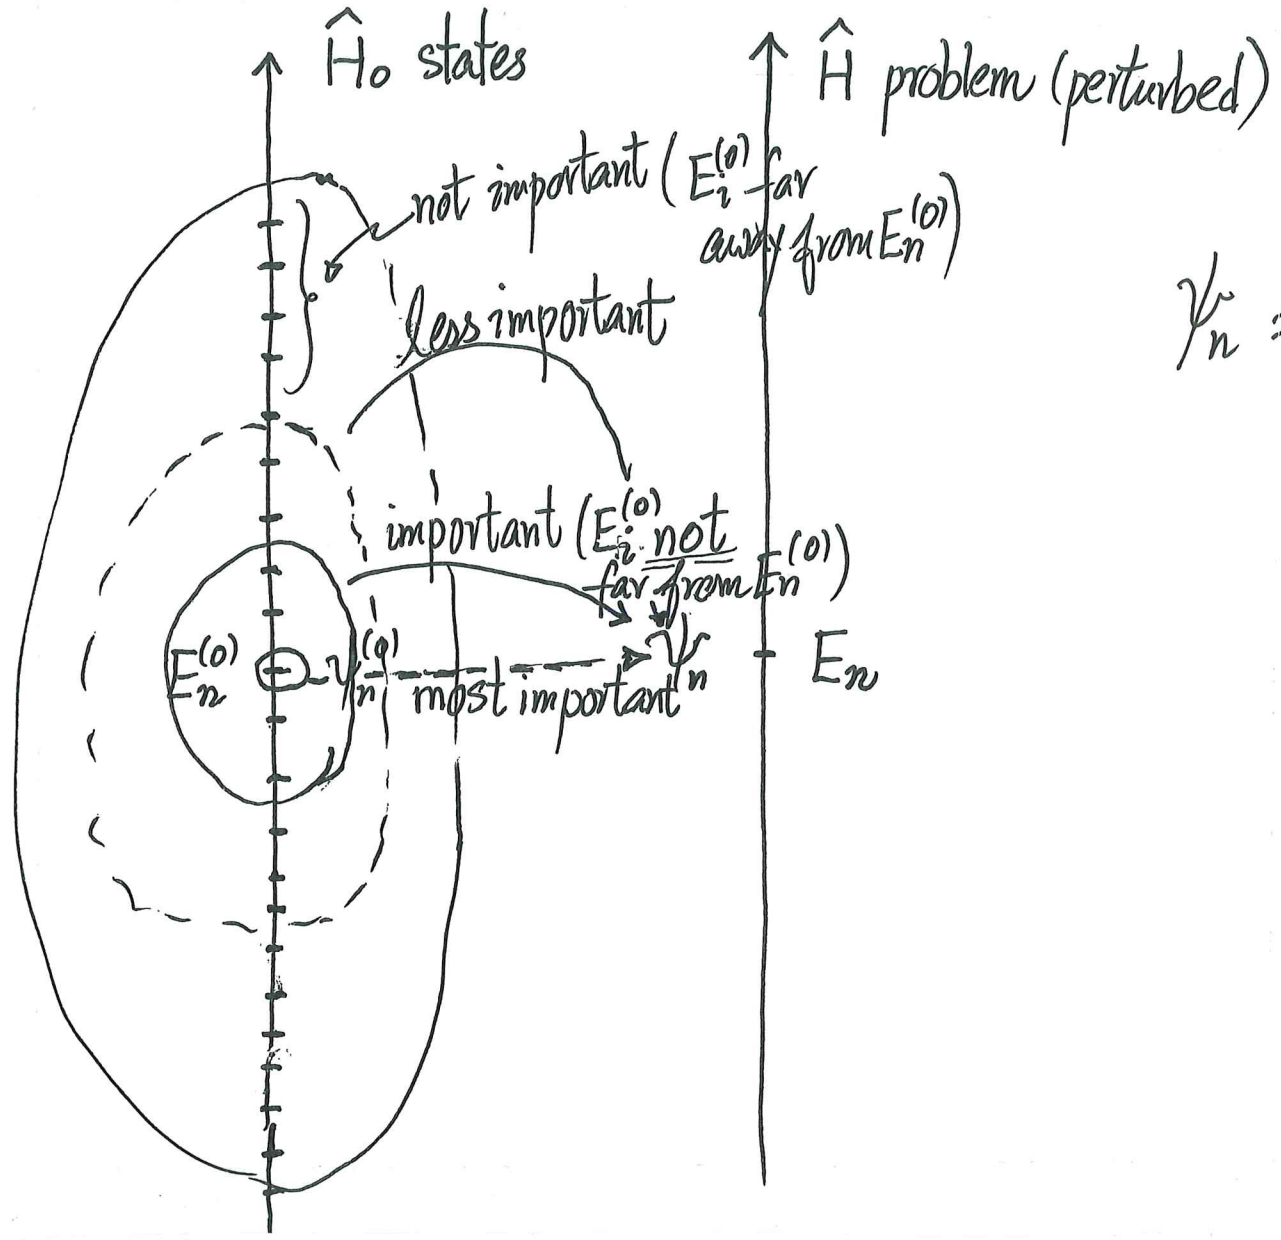 Ĥ₀ states
Ĥ problem (perturbed)
not important (E_i^(0) far
away from E_n^(0))
less important
ψ_n =
important (E_i^(0) not
far from E_n^(0))
E_n^(0) ψ_n^(0) ψ_n E_n
most important